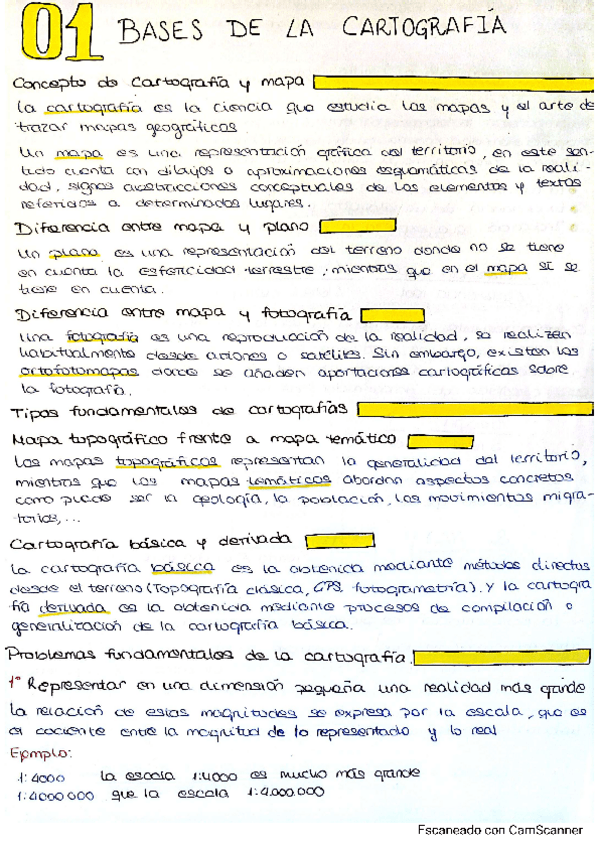 01 BASES DE LA CARTOGRAFÍA
Concepto de Cartografía y mapa
La cartografía es la ciencia que estudia los mapas y el arte de
trazar mapas geográficos.
Un mapa es una representación gráfica del territorio, en este sen-
tido cuenta con dibujos o aproximaciones esquemáticas de la reali-
dad, signos abstracciones conceptuales de los elementos y textos
referidos a determinados lugares.
Diferencia entre mapa y plano
Un plano es una representación del terreno donde no se tiene
en cuenta la esfericidad terrestre, mientras que en el mapa sí se
tiene en cuenta.
Diferencia entre mapa y fotografía
Una fotografía es una reproducción de la realidad, se realizan
habitualmente desde aviones o satélites. Sin embargo, existen los
ortofotomapas donde se añaden aportaciones cartográficas sobre
la fotografía.
Tipos fundamentales de cartografías
Mapa topográfico frente a mapa temático
Los mapas topográficos representan la generalidad del territorio,
mientras que los mapas temáticos abordan aspectos concretos
como puede ser la geología, la población, los movimientos migra-
torios,...
Cartografía básica y derivada
La cartografía básica es la obtenida mediante métodos directos
desde el terreno (Topografía clásica, GPS, fotogrametría). y la cartogra
fía derivada es la obtenida mediante procesos de compilación o
generalización de la cartografía básica.
Problemas fundamentales de la cartografía.
1º Representar en una dimensión pequeña una realidad más grande
La relación de estas magnitudes se expresa por la escala, que es
el cociente entre la magnitud de lo representado y lo real
Ejemplo:
1:4000 la escala 1:4000 es mucho más grande
1:4000000 que la escala 1:4.000.000
Escaneado con CamScanner